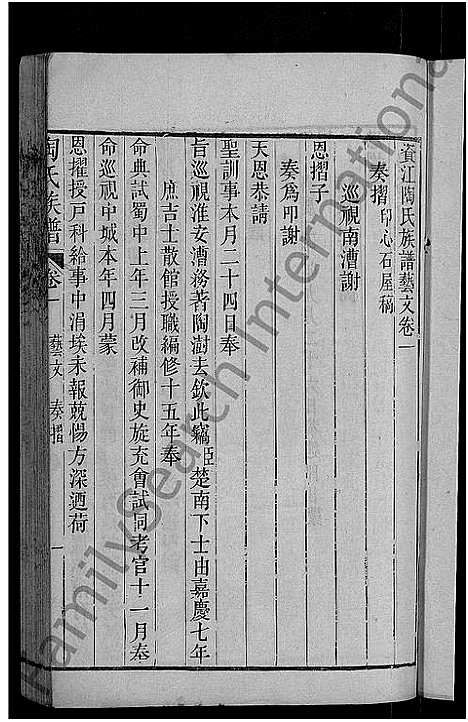 資江陶氏族譜藝文卷一
奏摺印心石屋稿
巡視南漕謝
恩摺子
奏爲叩謝
天恩恭請
聖訓事本月二十四日奉
旨巡視淮安漕務著陶澍去欽此竊臣楚南下士由嘉慶七年
庶吉士散館授職編修十五年奉
命典試蜀中上年三月改補御史旋充會試同考官十一月奉
命巡視中城本年四月蒙
恩擢授戶科給事中涓埃未報兢惕方深迺荷
陶氏族譜 卷一 藝文 奏摺 一
FamilySearch International